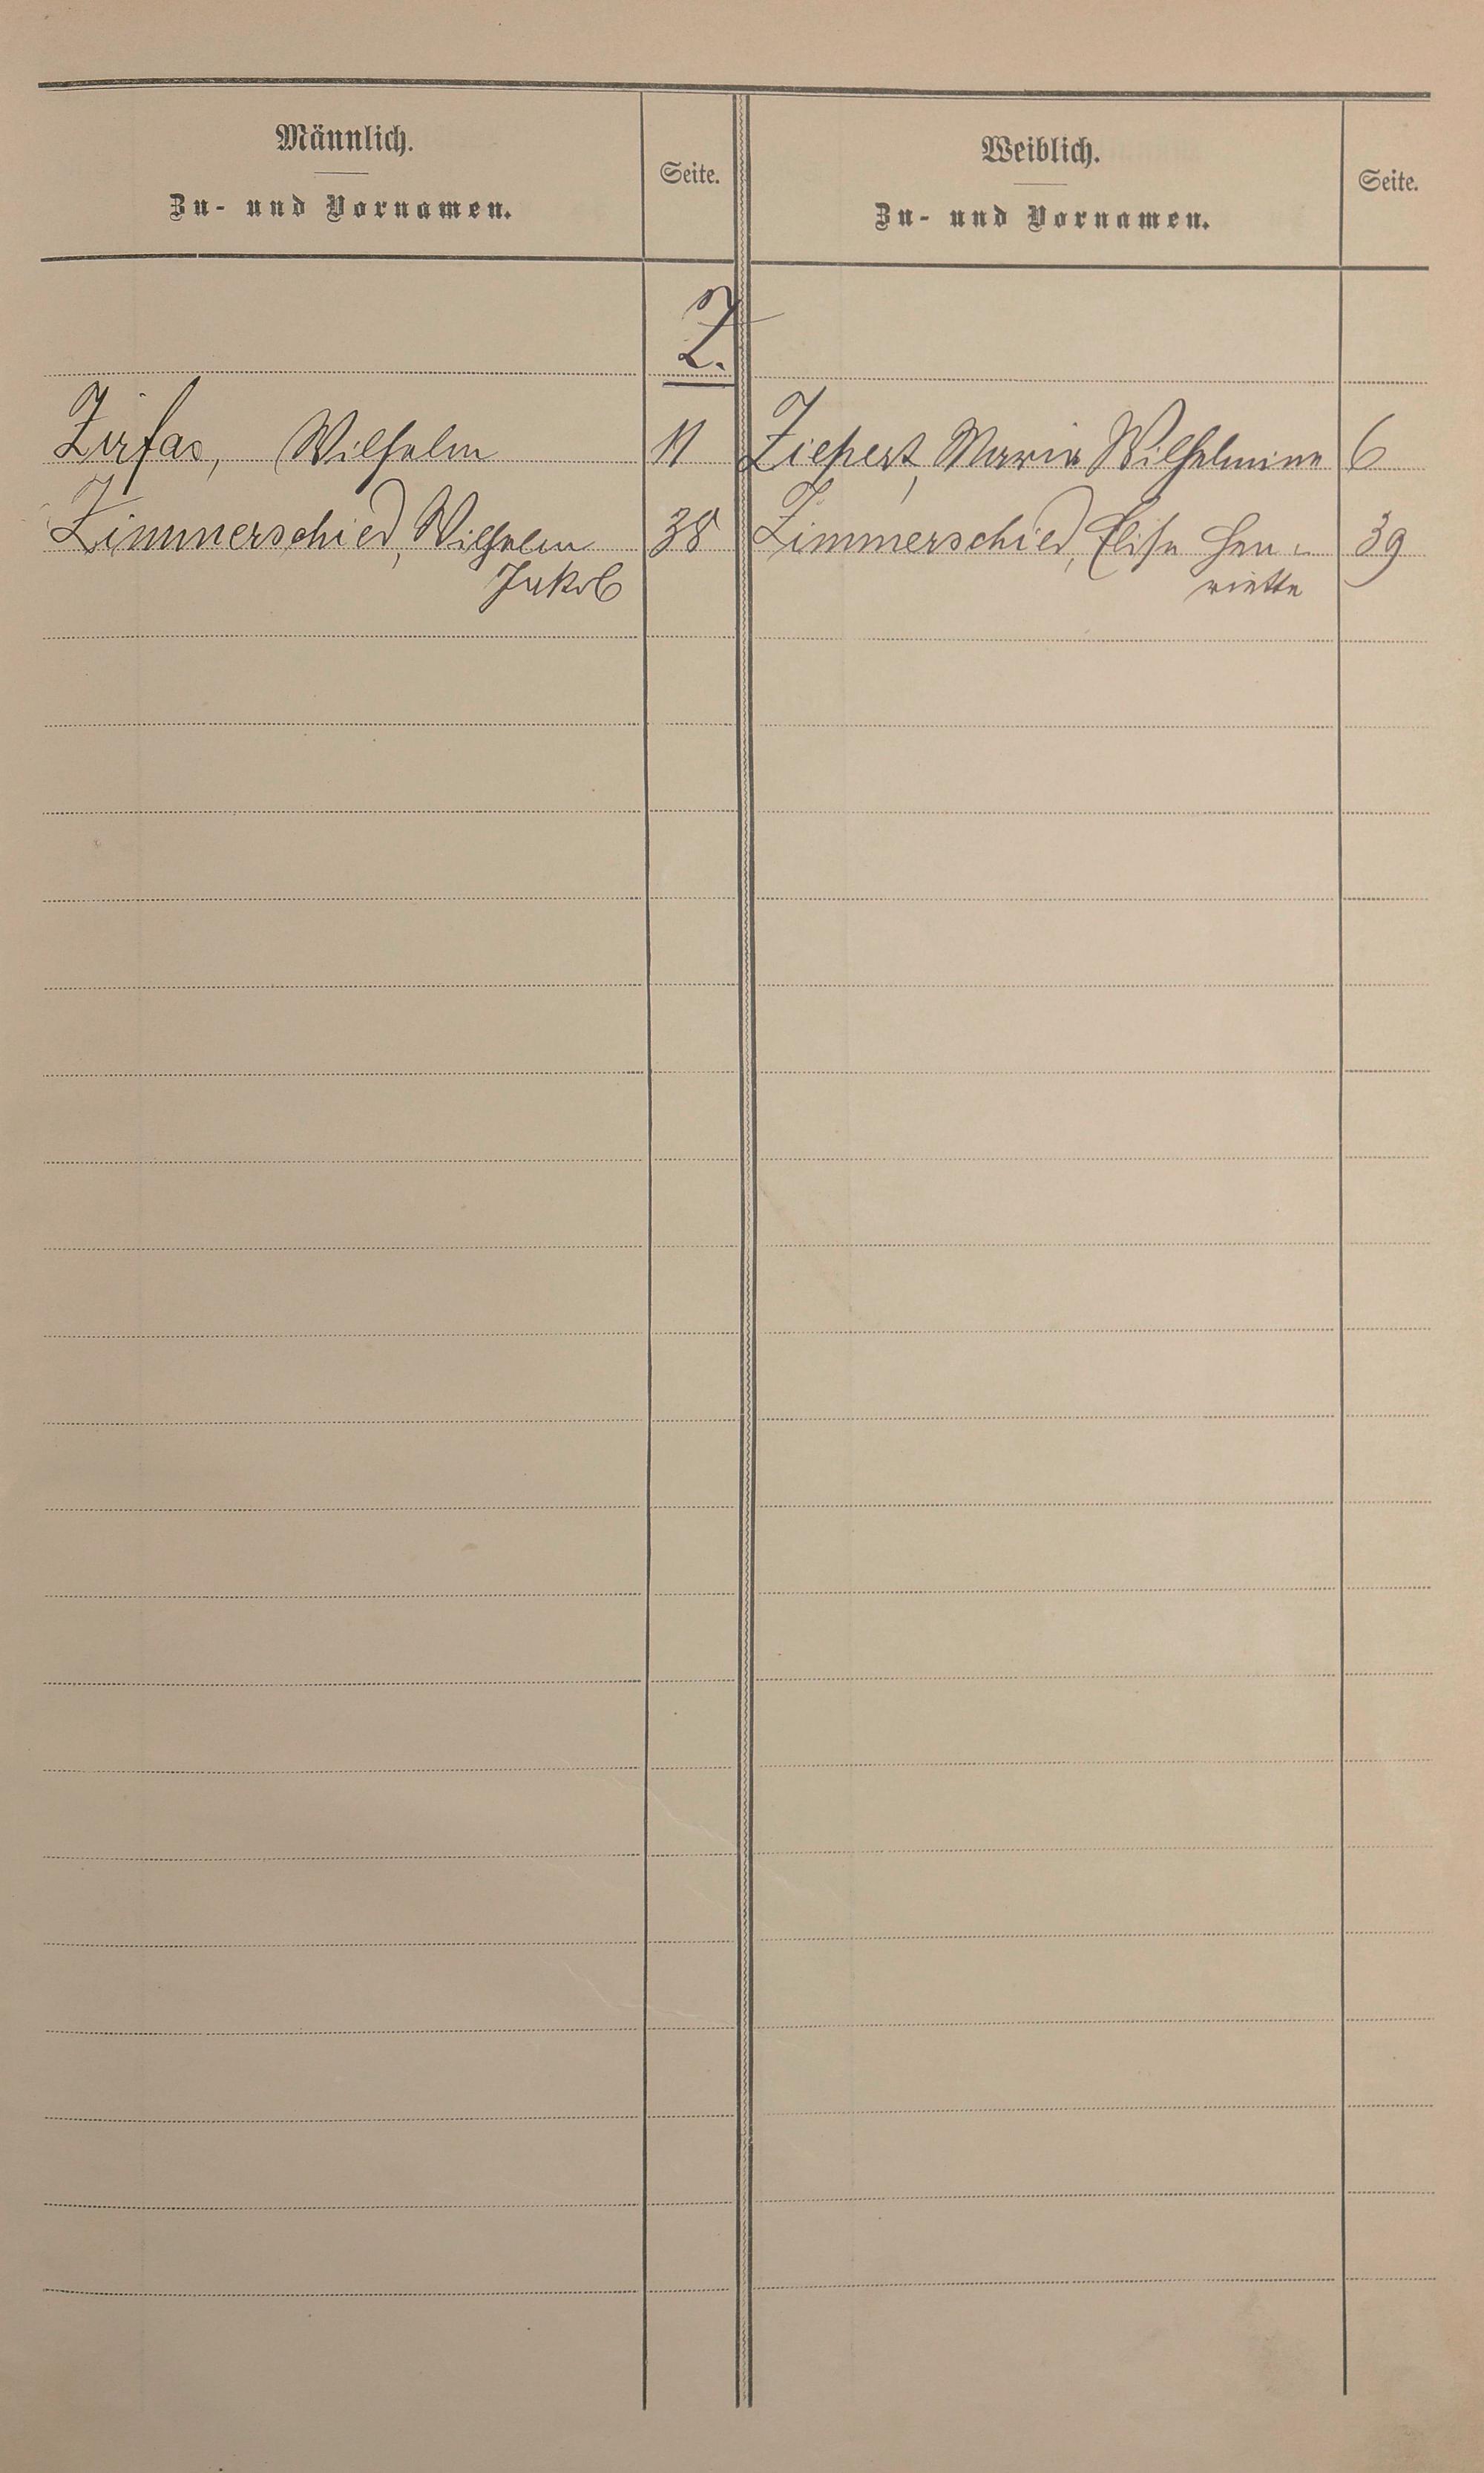 Männlich.
Zu- und Vornamen.
Seite.
Weiblich.
Zu- und Vornamen.
Seite.
Z.
Zirfas, Wilhelm 11 Ziepert, Maria Wilhelmine 6
Zimmerschied, Wilhelm 38 Zimmerschied, Elisa Hen- 39
Jakob riette